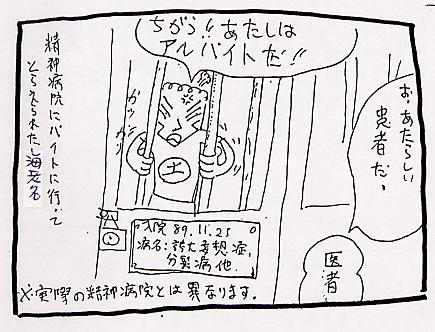 お、あたらしい
患者だ。
医者
ちがう!!あたしは
アルバイトだ!!
ガウン
ガウン
土
入院 89.11.25
病名:誇大妄想症、
分裂病 他
精神病院にバイトに行って
とらえられたし海老名
※実際の精神病院とは異なります。